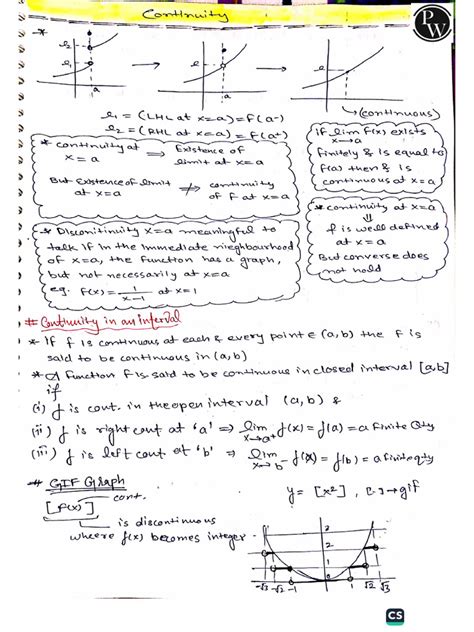 Continuity
PW
l₂
l₁
a
l
a
l
a
(continuous)
l₁ = (LHL at x=a) = F(a-)
l₂ = (RHL at x=a) = F(a+)
* continuity at x = a ⇒ Existence of limit at x = a
But existence of limit at x=a ⇏ continuity of F at x=a
if lim x→a F(x) exists
finitely & is equal to
F(a) then f is
continuous at x=a
* continuity at x=a
⇓
f is well defined
at x=a
But converse does
not hold
* Discontinuity x=a meaningful to
talk if in the immediate neighbourhood
of x=a, the function has a graph,
but not necessarily at x=a
eg. F(x) = 1/(x-1) at x=1
# Continuity in an interval
* If f is continuous at each & every point ∈ (a,b) the f is
said to be continuous in (a,b)
* A function F is said to be continuous in closed interval [a,b]
if
(i) f is cont. in the open interval (a,b) &
(ii) f is right cont at 'a' ⇒ lim x→a+ f(x) = f(a) = a finite Qty
(iii) f is left cont at 'b' ⇒ lim x→b- f(x) = f(b) = a finite qty
# GIF Graph
[f(x)] cont.
is discontinuous
where f(x) becomes integer.
y = [x²] , [.] → gif
3
2
1
0
-√3 -√2 -1 1 √2 √3
CS